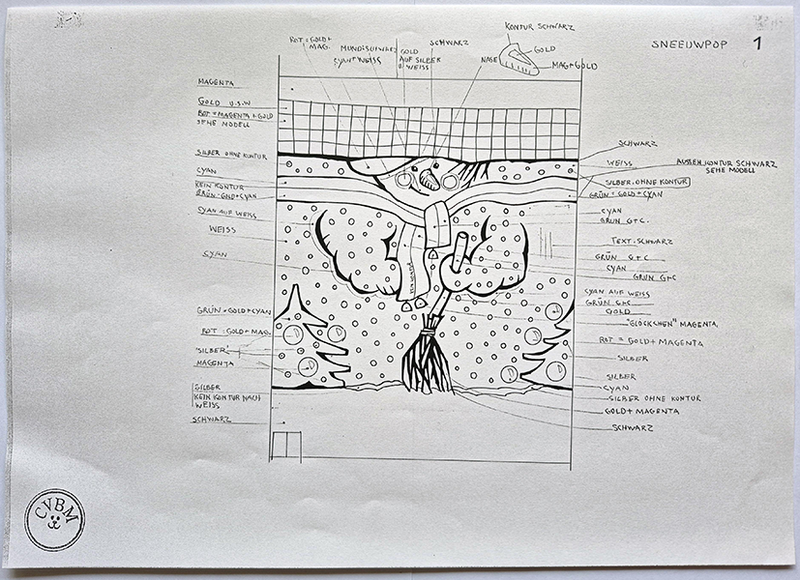 KONTUR SCHWARZ
GOLD
MAG+GOLD
NASE
SNEEUWPOP 1
ROT = GOLD+
MAG.
MUND: SCHWARZ
CYAN + WEISS
GOLD
AUF SILBER
WEISS
SCHWARZ
MAGENTA
GOLD U.S.W
ROT = MAGENTA + GOLD
SEHE MODELL
SILBER OHNE KONTUR
CYAN
KEIN KONTUR
GRÜN = GOLD + CYAN
CYAN AUF WEISS
WEISS
CYAN
GRÜN = GOLD + CYAN
ROT = GOLD + MAG.
"SILBER"
MAGENTA
SILBER
KEIN KONTUR NACH
WEISS
SCHWARZ
SCHWARZ
WEISS
AUßEN KONTUR SCHWARZ
SEHE MODELL
SILBER. OHNE KONTUR
GRÜN = GOLD + CYAN
CYAN
GRÜN G+C.
TEXT. SCHWARZ
GRÜN G+C
CYAN
GRÜN G+C
CYAN AUF WEISS
GRÜN G+C
GOLD
"GLÖCKCHEN" MAGENTA
ROT = GOLD + MAGENTA
SILBER
SILBER
CYAN
SILBER OHNE KONTUR
GOLD + MAGENTA
SCHWARZ
CVBM